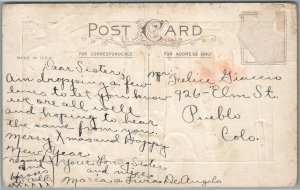 POST CARD
MADE IN U.S.A.
FOR CORRESPONDENCE
FOR ADDRESS ONLY
Dear Sisters
Am dropping a few
lines to let you know
we are all well
and hoping to hear
the same from you.
Merry Xmas and Happy
New Year
from your Loving Sister
and niece
Maria & Lucia De Angelo
Felice Giaccio
926-Elm St.
Pueblo
Colo.